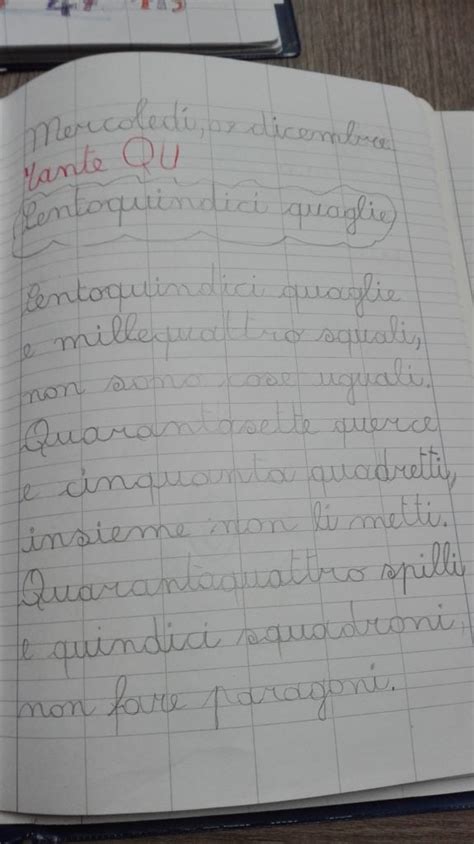 Mercoledì, 02 dicembre
Tante QU
Centoquindici quaglie
Centoquindici quaglie
e millequattro squali,
non sono cose uguali.
Quarantasette querce
e cinquanta quadretti,
insieme non li metti.
Quarantaquattro spilli
e quindici squadroni,
non fare paragoni.